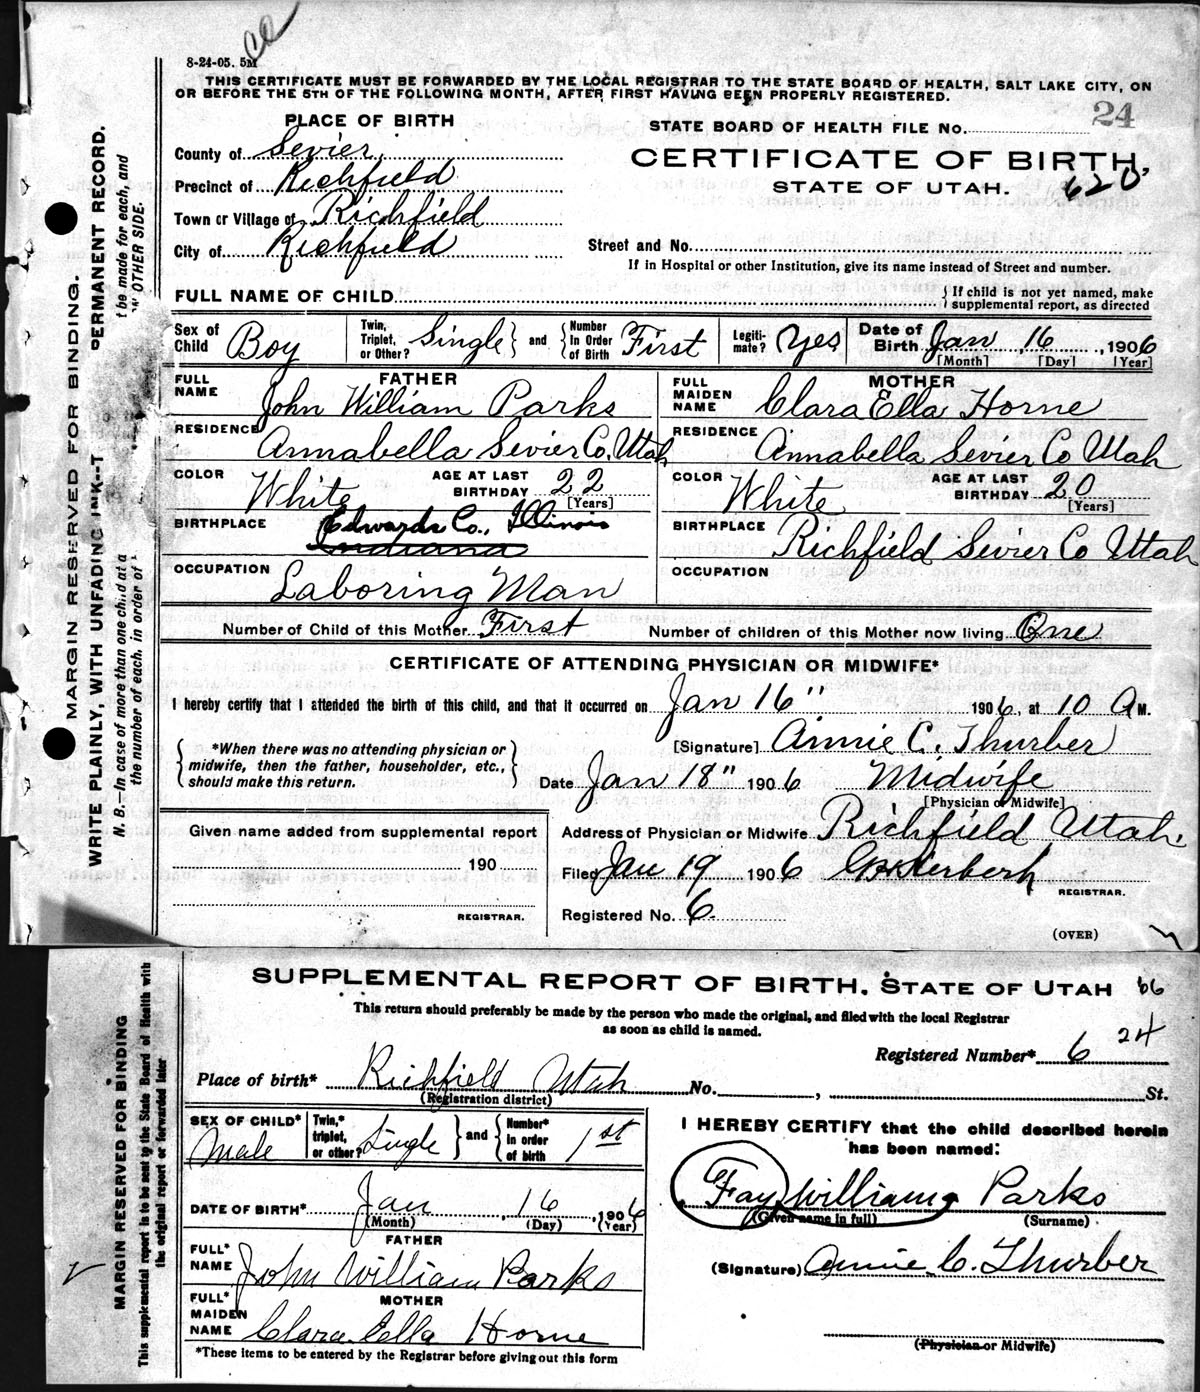 8-24-05. 5M
THIS CERTIFICATE MUST BE FORWARDED BY THE LOCAL REGISTRAR TO THE STATE BOARD OF HEALTH, SALT LAKE CITY, ON
OR BEFORE THE 5TH OF THE FOLLOWING MONTH, AFTER FIRST HAVING BEEN PROPERLY REGISTERED.
PLACE OF BIRTH
STATE BOARD OF HEALTH FILE No. 24
County of Sevier
CERTIFICATE OF BIRTH,
Precinct of Richfield
STATE OF UTAH. 620
Town or Village of Richfield
City of Richfield
Street and No.
If in Hospital or other Institution, give its name instead of Street and number.
FULL NAME OF CHILD
{ If child is not yet named, make
supplemental report, as directed
Sex of Child Boy
Twin, Triplet, or Other? Single } and { Number In Order of Birth First
Legitimate? Yes
Date of Birth Jan 16, 1906
[Month] [Day] [Year]
FATHER
FULL NAME John William Parks
RESIDENCE Annabella Sevier Co. Utah
COLOR White
AGE AT LAST BIRTHDAY 22
[Years]
BIRTHPLACE Edwards Co., Illinois
Indiana
OCCUPATION Laboring Man
MOTHER
FULL MAIDEN NAME Clara Ella Horne
RESIDENCE Annabella Sevier Co Utah
COLOR White
AGE AT LAST BIRTHDAY 20
[Years]
BIRTHPLACE Richfield Sevier Co Utah
OCCUPATION
Number of Child of this Mother First
Number of children of this Mother now living One
CERTIFICATE OF ATTENDING PHYSICIAN OR MIDWIFE*
I hereby certify that I attended the birth of this child, and that it occurred on Jan 16" 1906, at 10 A M.
{ *When there was no attending physician or
midwife, then the father, householder, etc.,
should make this return. }
[Signature] Annie C. Thurber
Date Jan 18" 1906 Midwife
[Physician or Midwife]
Given name added from supplemental report
190
REGISTRAR.
Address of Physician or Midwife Richfield Utah.
Filed Jan 19 1906
REGISTRAR.
Registered No. 6
(OVER)
MARGIN RESERVED FOR BINDING.
WRITE PLAINLY, WITH UNFADING INK--T PERMANENT RECORD.
N. B.—In case of more than one child at a t be made for each, and
the number of each, in order of OTHER SIDE.
SUPPLEMENTAL REPORT OF BIRTH. STATE OF UTAH 66
This return should preferably be made by the person who made the original, and filed with the local Registrar
as soon as child is named.
Registered Number* 6 24
Place of birth* Richfield Utah No. , St.
(Registration district)
SEX OF CHILD* Male
Twin,* triplet, or other? Single } and { Number* in order of birth 1st
DATE OF BIRTH* Jan 16, 1906
(Month) (Day) (Year)
FATHER
FULL* NAME John William Parks
MOTHER
FULL* MAIDEN NAME Clara Ella Horne
*These items to be entered by the Registrar before giving out this form
I HEREBY CERTIFY that the child described herein
has been named:
Fay William Parks
(Given name in full) (Surname)
(Signature) Annie C. Thurber
(Physician or Midwife)
MARGIN RESERVED FOR BINDING
This supplemental report is to be sent to the State Board of Health with
the original report or forwarded later